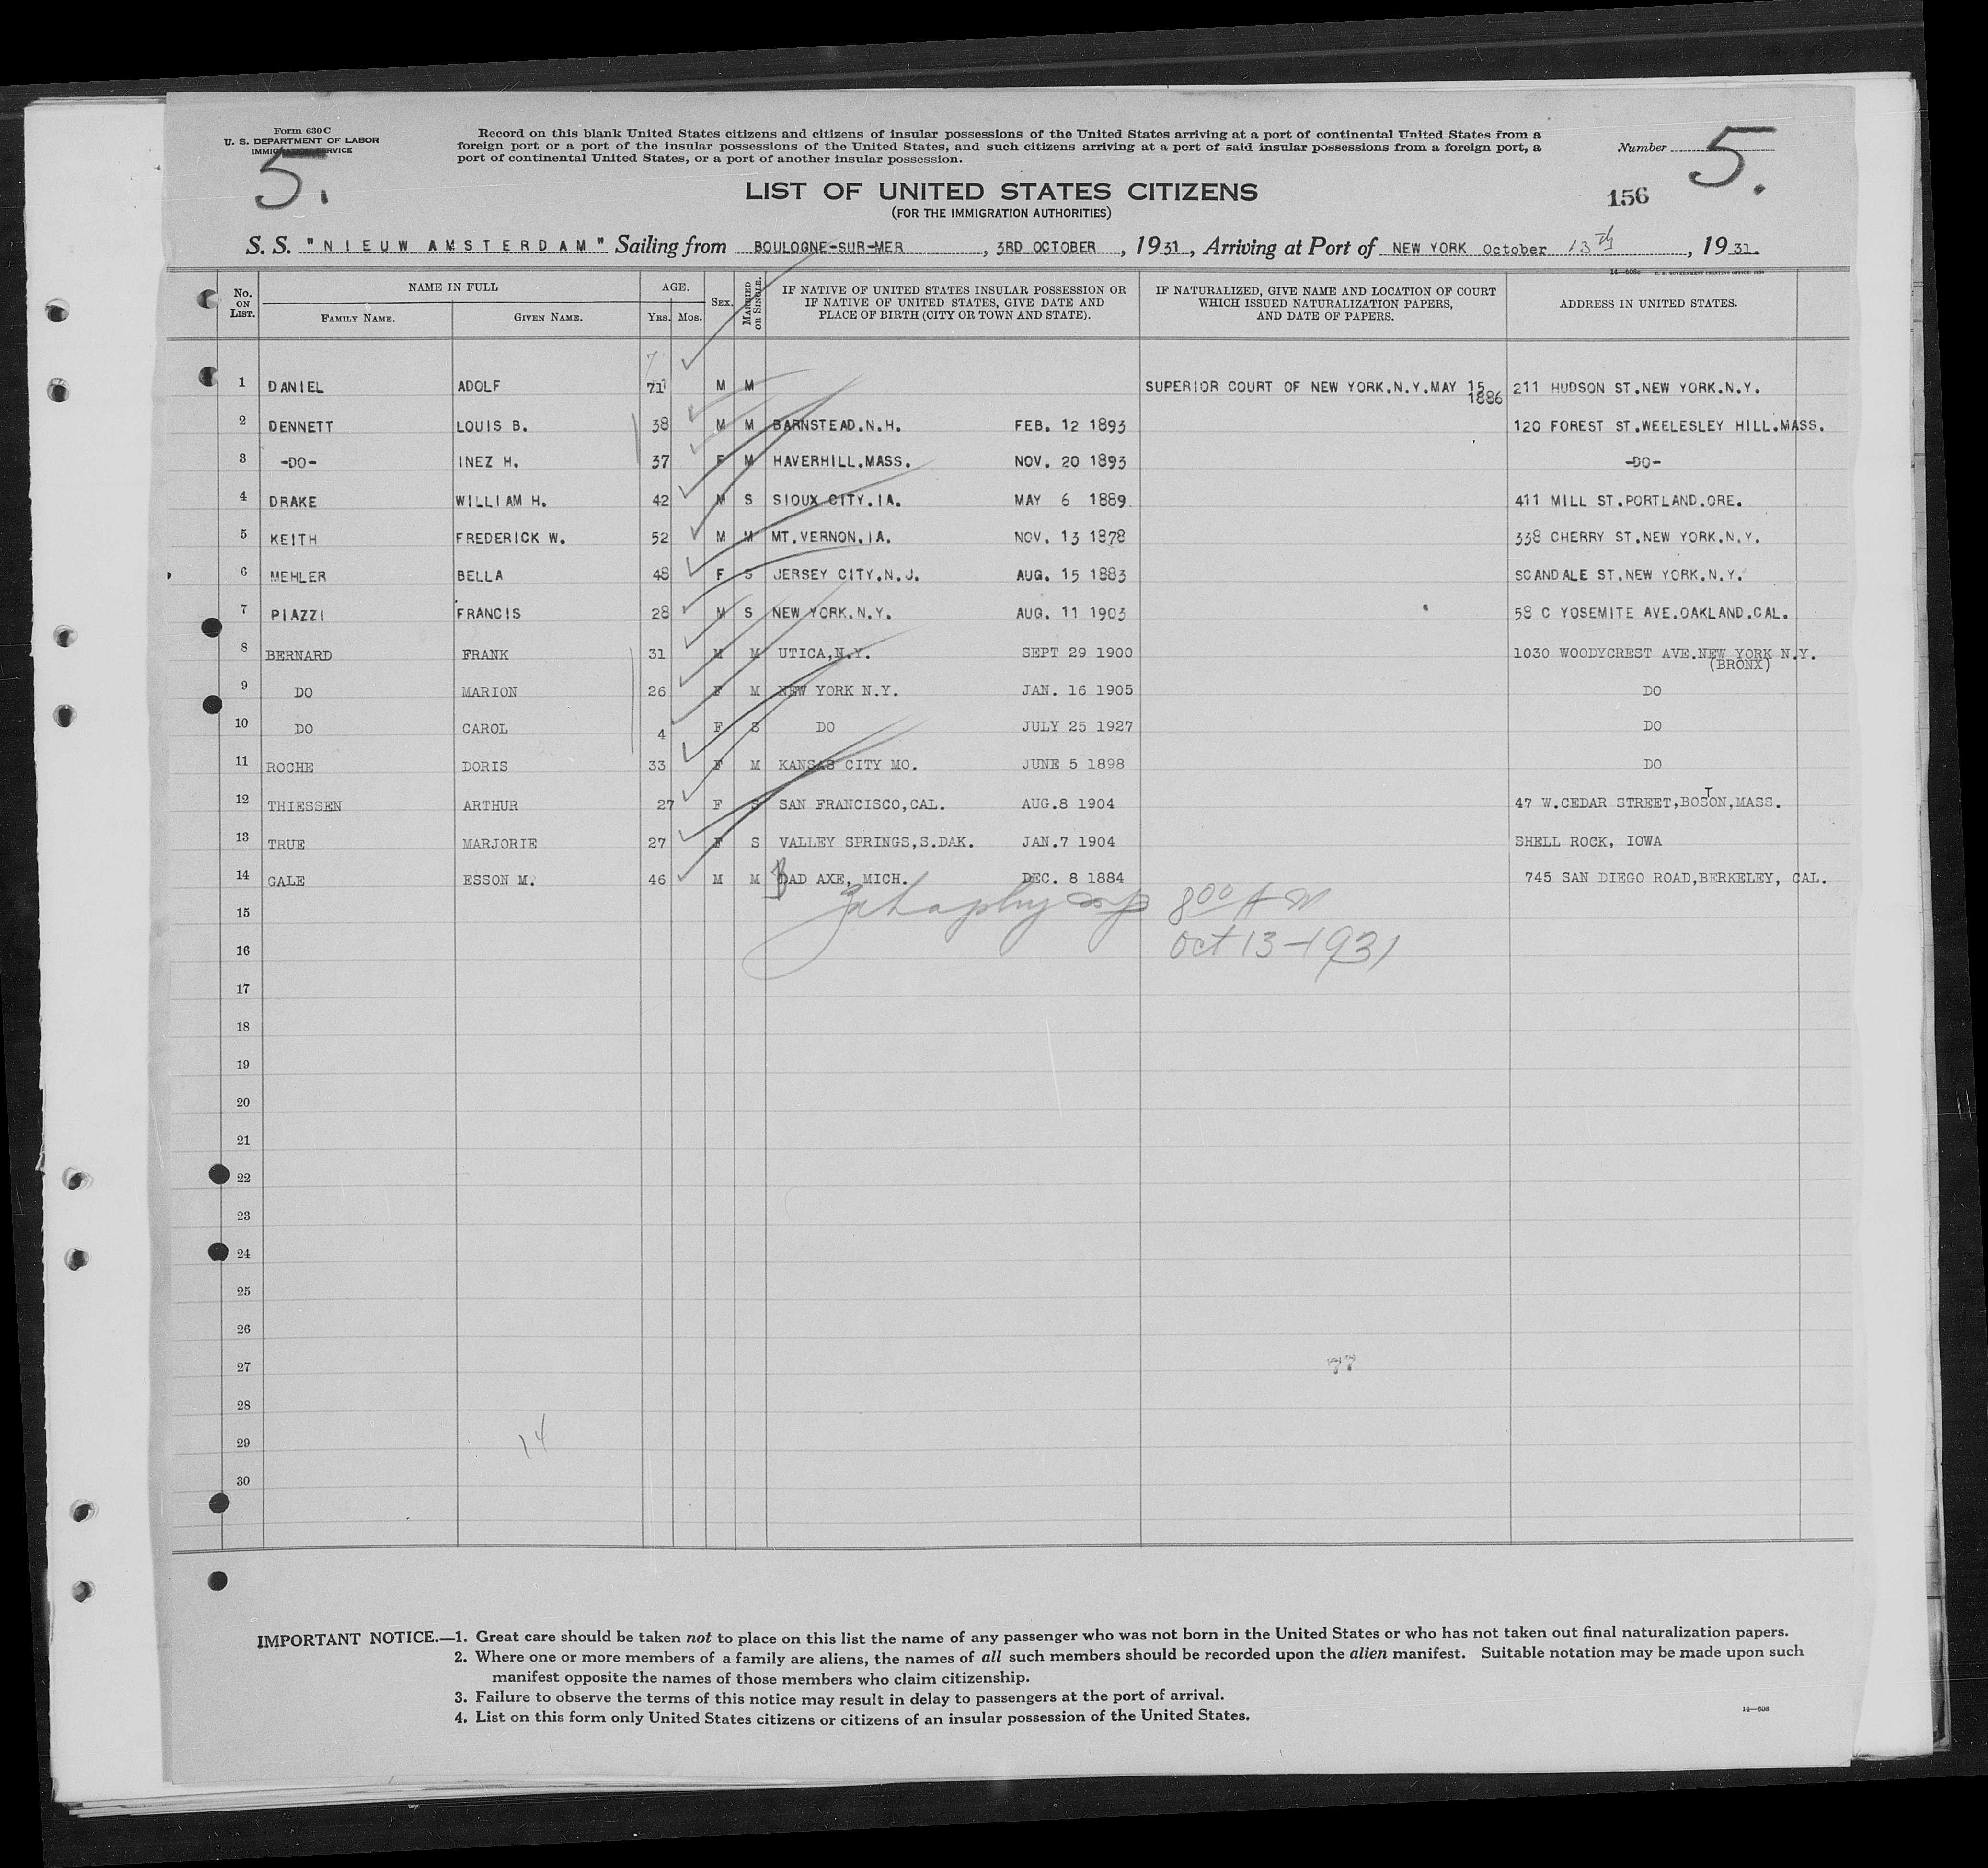 Form 630 C
U. S. DEPARTMENT OF LABOR
IMMIGRATION SERVICE
5.
Record on this blank United States citizens and citizens of insular possessions of the United States arriving at a port of continental United States from a
foreign port or a port of the insular possessions of the United States, and such citizens arriving at a port of said insular possessions from a foreign port, a
port of continental United States, or a port of another insular possession.
Number 5.
LIST OF UNITED STATES CITIZENS
(FOR THE IMMIGRATION AUTHORITIES)
156
S. S. "NIEUW AMSTERDAM" Sailing from BOULOGNE-SUR-MER, 3RD OCTOBER, 1931, Arriving at Port of NEW YORK October 13th, 1931.
No. ON LIST. NAME IN FULL FAMILY NAME. GIVEN NAME. AGE. YRS. MOS. SEX. MARRIED OR SINGLE. IF NATIVE OF UNITED STATES INSULAR POSSESSION OR IF NATIVE OF UNITED STATES, GIVE DATE AND PLACE OF BIRTH (CITY OR TOWN AND STATE). IF NATURALIZED, GIVE NAME AND LOCATION OF COURT WHICH ISSUED NATURALIZATION PAPERS, AND DATE OF PAPERS. ADDRESS IN UNITED STATES.
1 DANIEL ADOLF 71 M M SUPERIOR COURT OF NEW YORK.N.Y.MAY 15 1886 211 HUDSON ST.NEW YORK.N.Y.
2 DENNETT LOUIS B. 38 M M BARNSTEAD.N.H. FEB. 12 1893 120 FOREST ST.WEELESLEY HILL.MASS.
3 -DO- INEZ H. 37 F M HAVERHILL.MASS. NOV. 20 1893 -DO-
4 DRAKE WILLIAM H. 42 M S SIOUX CITY.IA. MAY 6 1889 411 MILL ST.PORTLAND.ORE.
5 KEITH FREDERICK W. 52 M M MT.VERNON.IA. NOV. 13 1878 338 CHERRY ST.NEW YORK.N.Y.
6 MEHLER BELLA 48 F S JERSEY CITY.N.J. AUG. 15 1883 SCANDALE ST.NEW YORK.N.Y.
7 PIAZZI FRANCIS 28 M S NEW YORK.N.Y. AUG. 11 1903 58 C YOSEMITE AVE.OAKLAND.CAL.
8 BERNARD FRANK 31 M M UTICA,N.Y. SEPT 29 1900 1030 WOODYCREST AVE.NEW YORK N.Y. (BRONX)
9 DO MARION 26 F M NEW YORK N.Y. JAN. 16 1905 DO
10 DO CAROL 4 F S DO JULY 25 1927 DO
11 ROCHE DORIS 33 F M KANSAS CITY MO. JUNE 5 1898 DO
12 THIESSEN ARTHUR 27 F S SAN FRANCISCO,CAL. AUG.8 1904 47 W.CEDAR STREET,BOSTON,MASS.
13 TRUE MARJORIE 27 F S VALLEY SPRINGS,S.DAK. JAN.7 1904 SHELL ROCK, IOWA
14 GALE ESSON M. 46 M M BAD AXE, MICH. DEC. 8 1884 745 SAN DIEGO ROAD,BERKELEY, CAL.
15 800 A M
16 Oct 13-1931
17
18
19
20
21
22
23
24
25
26
27 77
28
29 14
30
IMPORTANT NOTICE.—1. Great care should be taken not to place on this list the name of any passenger who was not born in the United States or who has not taken out final naturalization papers.
2. Where one or more members of a family are aliens, the names of all such members should be recorded upon the alien manifest. Suitable notation may be made upon such
manifest opposite the names of those members who claim citizenship.
3. Failure to observe the terms of this notice may result in delay to passengers at the port of arrival.
4. List on this form only United States citizens or citizens of an insular possession of the United States.
14—608